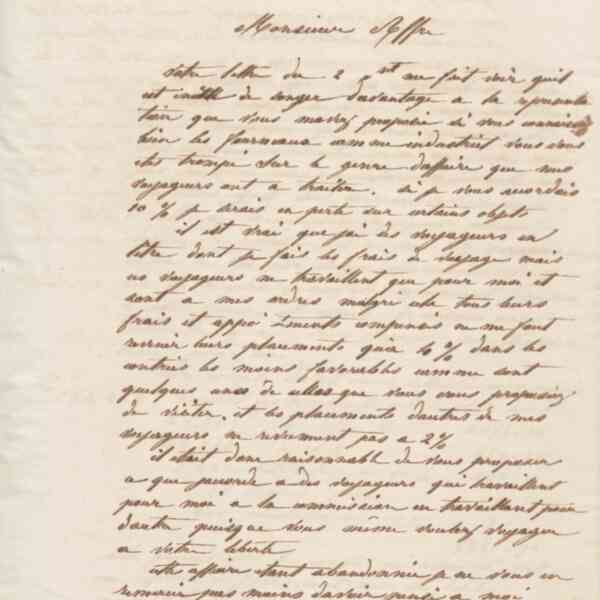 Monsieur Affre
votre lettre du 2 ct me fait voir quil
est inutile de songer davantage a la représenta
tion que vous mavez proposée si vous connaissez
bien les fourneaux comme industriel vous vous
etes trompé sur le genre d'affaire que mes
voyageurs ont a traiter. si je vous accordais
10 % je serais en perte sur certains objets
il est vrai que jai des voyageurs en
titre dont je fais les frais de voyage mais
ces voyageurs ne travaillent que pour moi et
sont a mes ordres malgré cela tous leurs
frais et appointements compensés ne me font
revenir leurs placements qua 10 % dans les
contrées les moins favorables comme sont
quelques unes de celles que vous vous proposiez
de visiter, et les placements dautres de mes
voyageurs ne reviennent pas a 2 %
il était donc raisonnable de vous proposer
ce que jaccorde a des voyageurs qui travaillent
pour moi a la commission en travaillant pour
dautre puisque vous même voulez voyager
a votre liberté
cette affaire etant abandonnée je ne vous en
remercie pas moins davoir pensé a moi